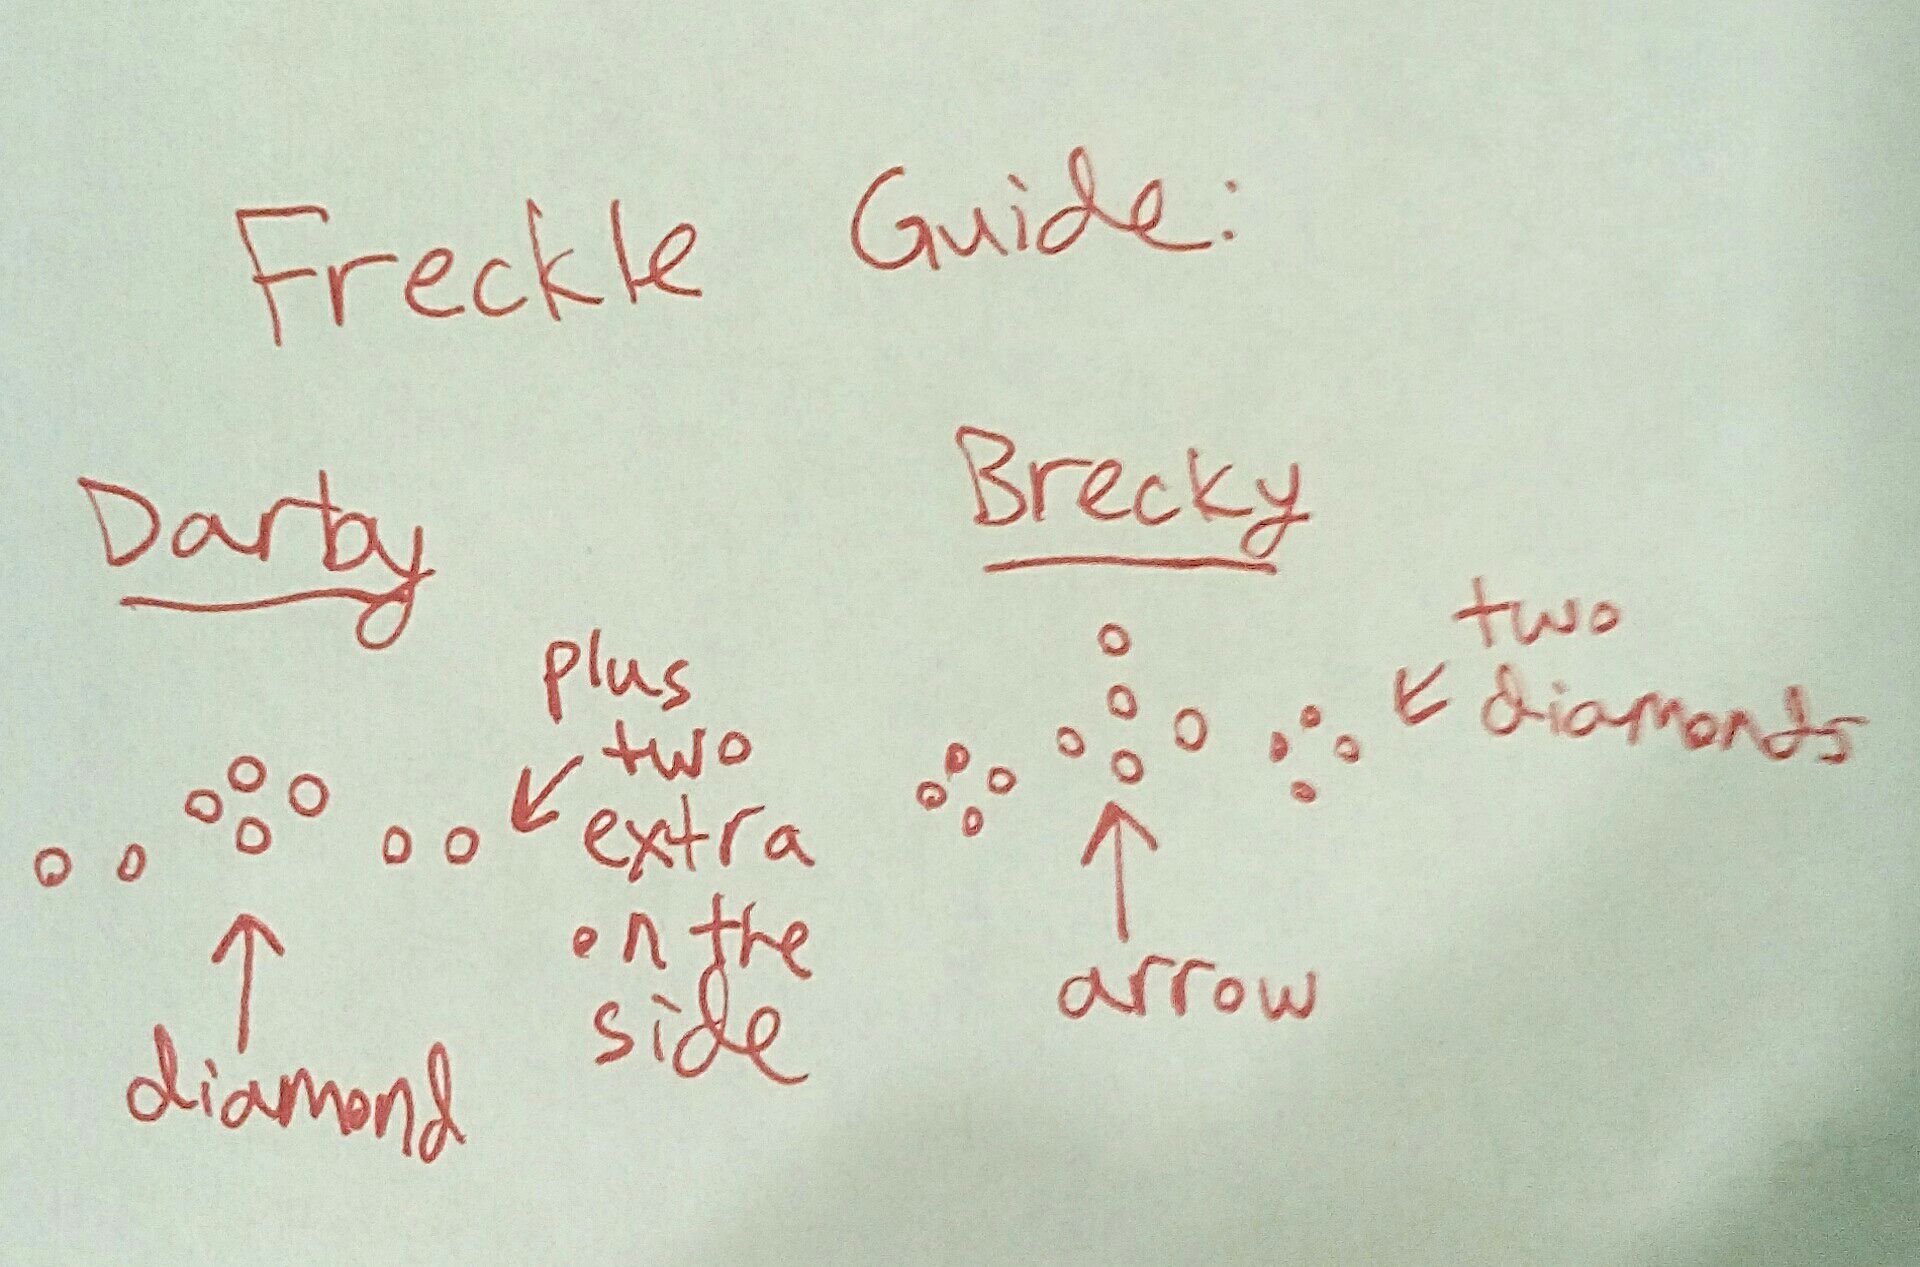 Freckle Guide:
Darby
plus
two
extra
on the
side
diamond
Brecky
two
diamonds
arrow